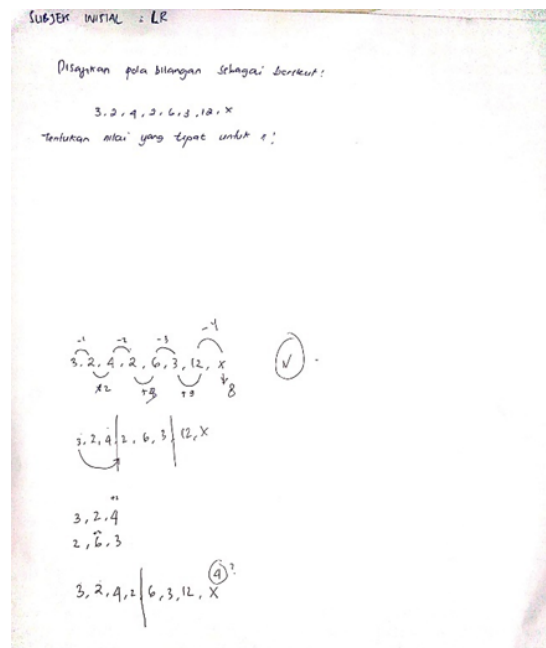 SUBJEK INISIAL : LR
Disajikan pola bilangan sebagai berikut:
3, 2, 4, 2, 6, 3, 12, x
Tentukan nilai yang tepat untuk x!
-1 -2 -3 -4
3, 2, 4, 2, 6, 3, 12, x
×2 8
3, 2, 4 | 2, 6, 3 | 12, x
3, 2, 4
2, 6, 3
4 ?
3, 2, 4, 2 | 6, 3, 12, x